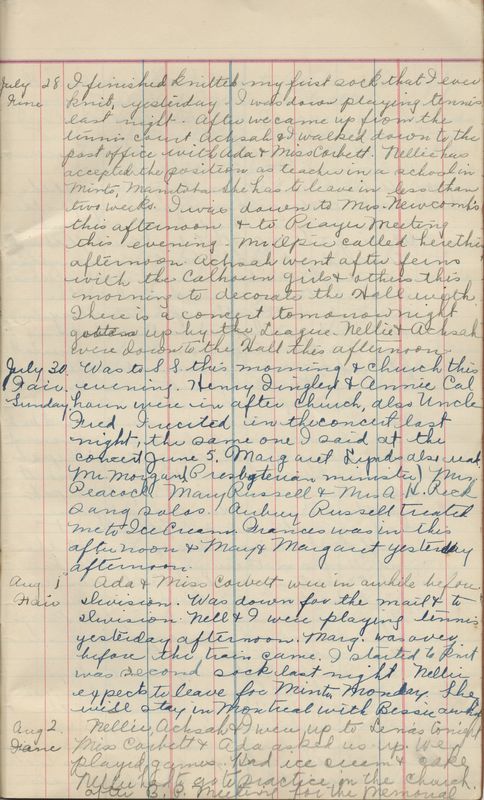 July 28 I finished knitted my first sock that I ever
Fine knit, yesterday I was down playing tennis
last night. After we came up from the
tennis court Achsah & I walked down to the
post office with Ada & Miss Corbett. Nellie has
accepted the position as teacher in a school in
Minto, Manitoba She has to leave in less than
two weeks. I was down to Mrs. Newcomb's
this afternoon & to Prayer Meeting
this evening. Mr. Opie called here this
afternoon Achsah went after ferns
with the Calhoun girls & others this
morning to decorate the Hall with
There is a concert tomorrow night
up by the League. Nellie & Achsah
were down to the Hall this afternoon
July 30. Was to S S this morning & church this
Fair. evening. Henry Tingley & Annie Cal
Sunday houn were in after church, also Uncle
Fred. I recited in the concert last
night, the same one I said at the
concert June 5. Margaret Lynds also read
Mr Morgan (Presbyterian minister) Mrs
Peacock Mary Russell & Mrs A. H. Peck
sang solos. Aubrey Russell treated
me to Ice Cream. Frances was in this
afternoon & May & Margaret yesterday
afternoon.
Aug 1 Ada & Miss Corbett were in awhile before
Fair Division. Was down for the mail & to
Division. Nell & I were playing tennis
yesterday afternoon. Marg. was over
before the train came. I started to knit
was second sock last night Nellie
expects to leave for Minto Monday. She
will stay in Montreal with Bessie awhile
Aug 2. Nellie, Achsah & I were up to Lena's tonight
Fine Miss Corbett & Ada asked us up. We
played games. Had ice cream & cake
Nellie had to go to practice in the church
after B. B. Meeting for the Memorial